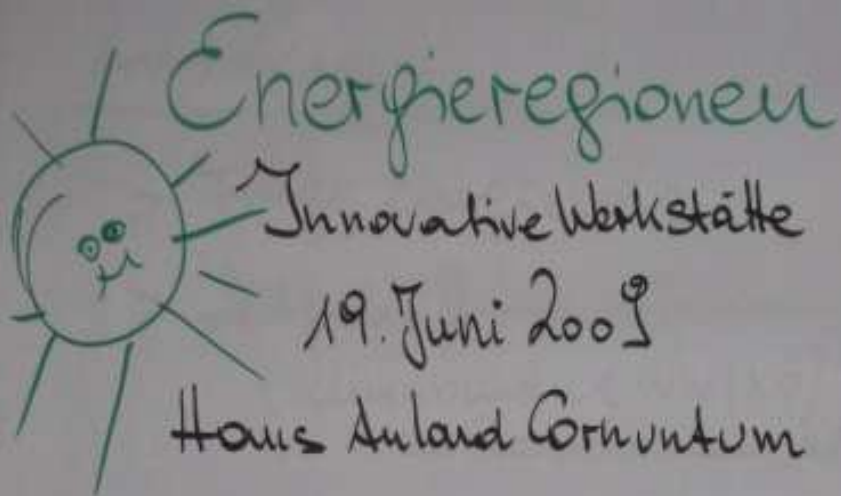 Energieregionen
Innovative Werkstätte
19. Juni 2009
Haus Auland Carnuntum